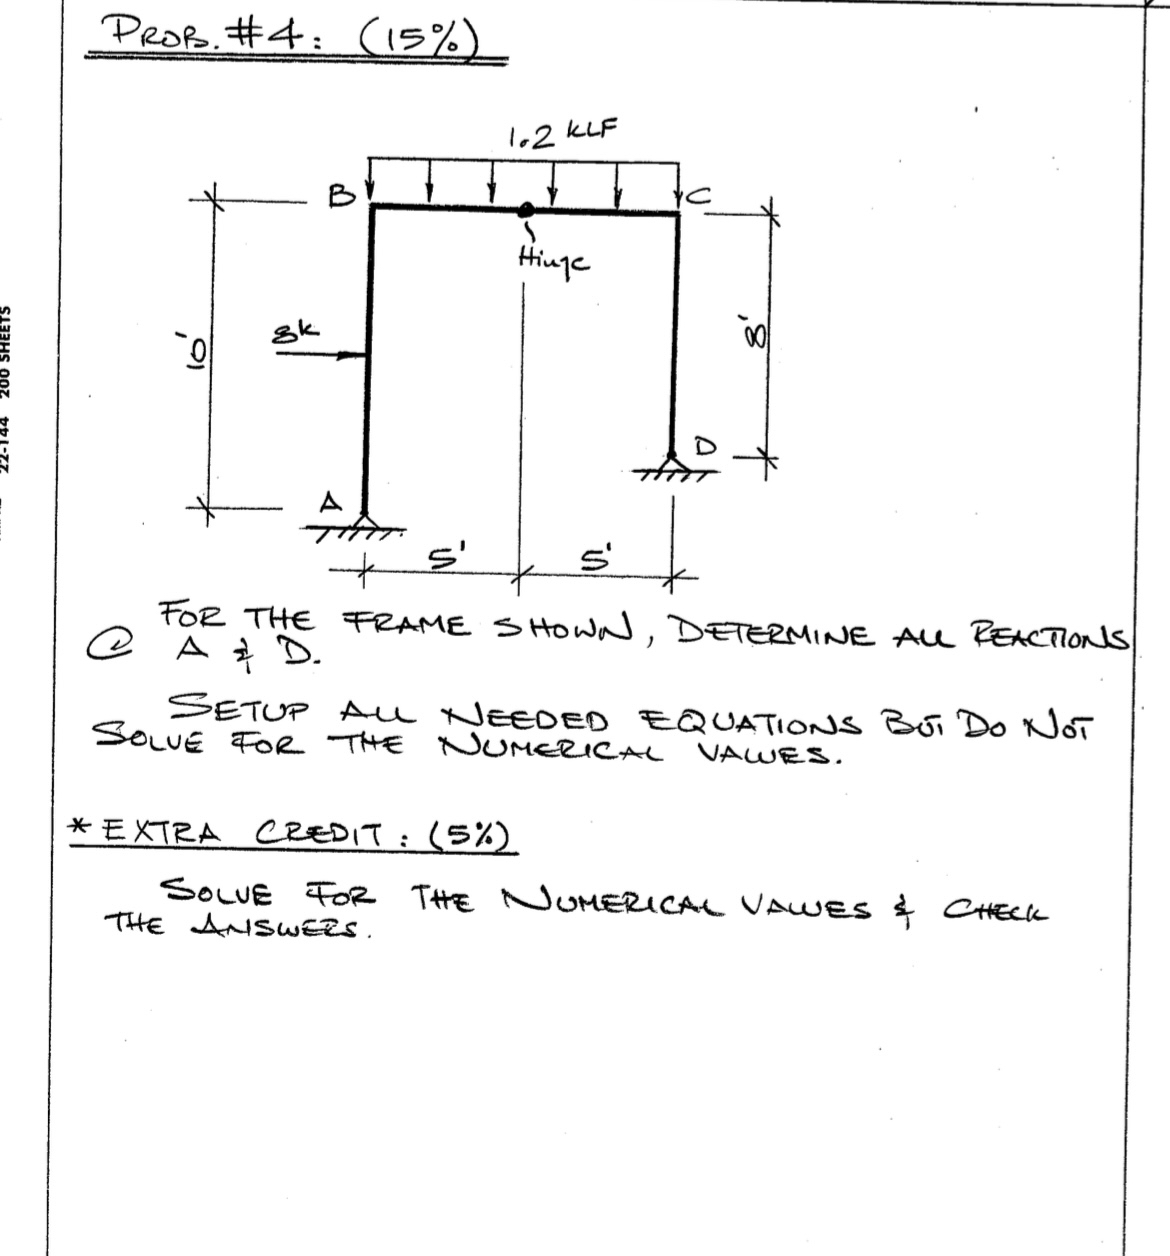 22-144 200 SHEETS
PROB. #4: (15%)
1.2 KLF
B
C
Hinge
8k
10'
8'
D
A
5' 5'
FOR THE FRAME SHOWN, DETERMINE ALL REACTIONS
@ A & D.
SETUP ALL NEEDED EQUATIONS BUT DO NOT
SOLVE FOR THE NUMERICAL VALUES.
* EXTRA CREDIT: (5%)
SOLVE FOR THE NUMERICAL VALUES & CHECK
THE ANSWERS.